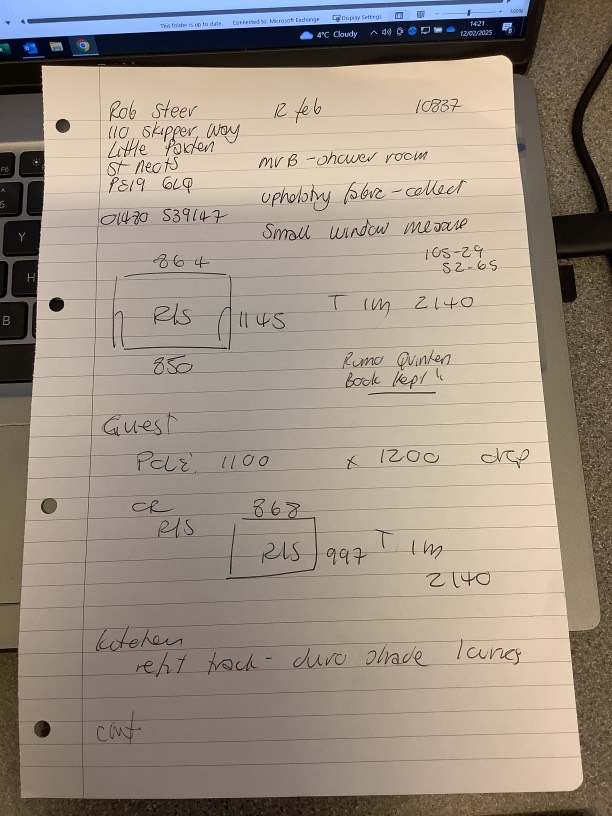 This folder is up to date. Connected to: Microsoft Exchange Display Settings 100%
4°C Cloudy 14:21 12/02/2025
Rob Steer 12 feb 10837
110 Skipper Way
Little Paxton
St Neots
PE19 6LQ
01480 539147
mr B - shower room
upholstry fabric - collect
Small window measure
105-29
52-65
864
R/S 1145 T 1m 2140
850
Romo Quinten
Book kept
Guest
Pole: 1100 x 1200 drop
CR 868
R/S
R/S 997 T 1m
2140
kitchen
refit track - duro shade
F6
5
Y
H
B